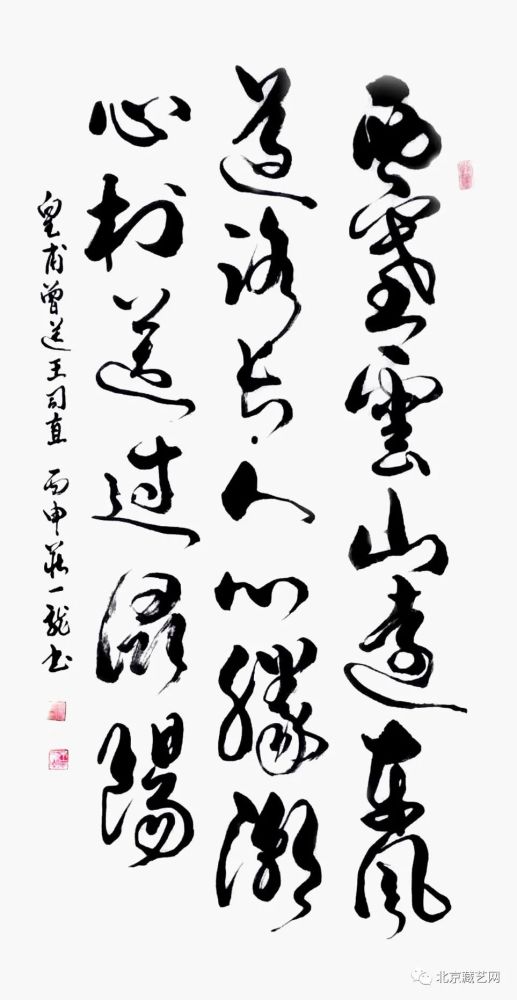 西塞雲山遠東風
道路長人心勝潮
心相送过潯陽
皇甫曾送王司直 丙申莊一龍书
北京藏艺网